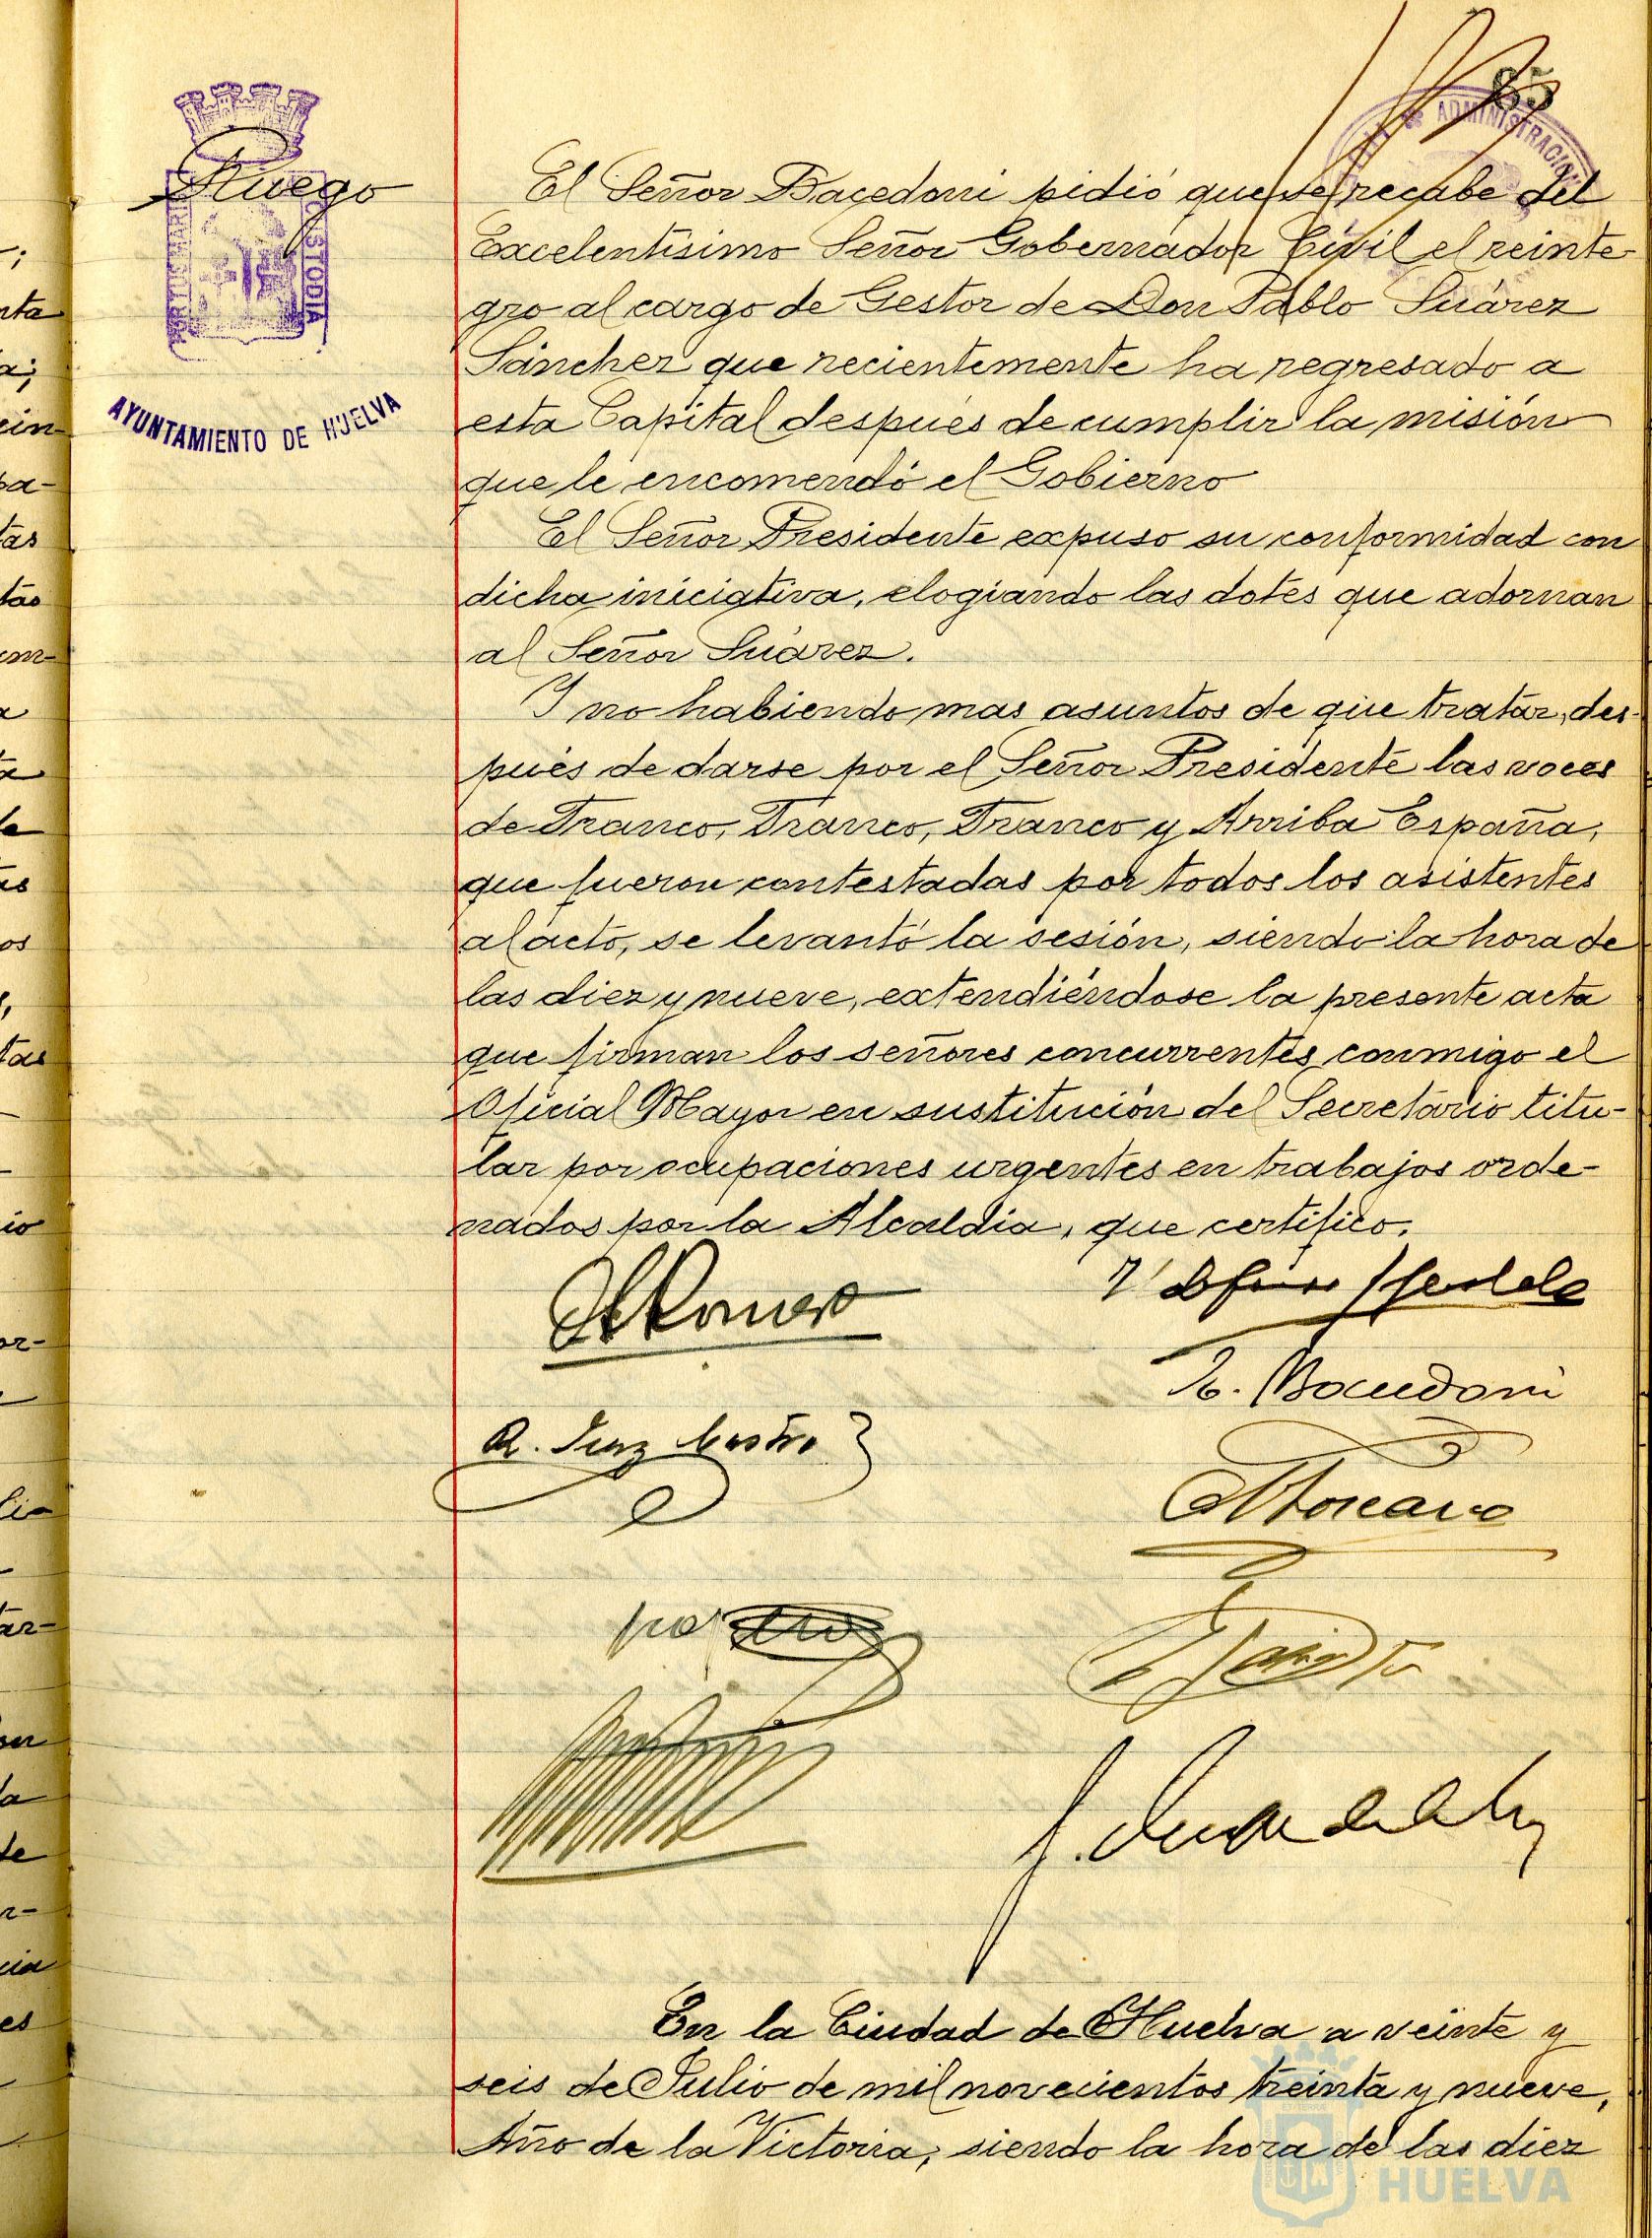 85
ADMINISTRACION
Ruego
PORTUS MARIS
CUSTODIA
AYUNTAMIENTO DE HUELVA
El Señor Bacedoni pidió que se recabe del
Excelentísimo Señor Gobernador Civil el reinte-
gro al cargo de Gestor de Don Pablo Suárez
Sánchez que recientemente ha regresado a
esta Capital después de cumplir la misión
que le encomendó el Gobierno
El Señor Presidente expuso su conformidad con
dicha iniciativa, elogiando las dotes que adornan
al Señor Suárez.
Y no habiendo mas asuntos de que tratar, des-
pués de darse por el Señor Presidente las voces
de Franco, Franco, Franco y Arriba España,
que fueron contestadas por todos los asistentes
al acto, se levantó la sesión, siendo la hora de
las diez y nueve, extendiéndose la presente acta
que firman los señores concurrentes conmigo el
Oficial Mayor en sustitución del Secretario titu-
lar por ocupaciones urgentes en trabajos orde-
nados por la Alcaldia, que certifico.
En la Ciudad de Huelva a veinte y
seis de Julio de mil novecientos treinta y nueve,
Año de la Victoria, siendo la hora de las diez
HUELVA
nta
a;
ein-
pa-
tas
tas